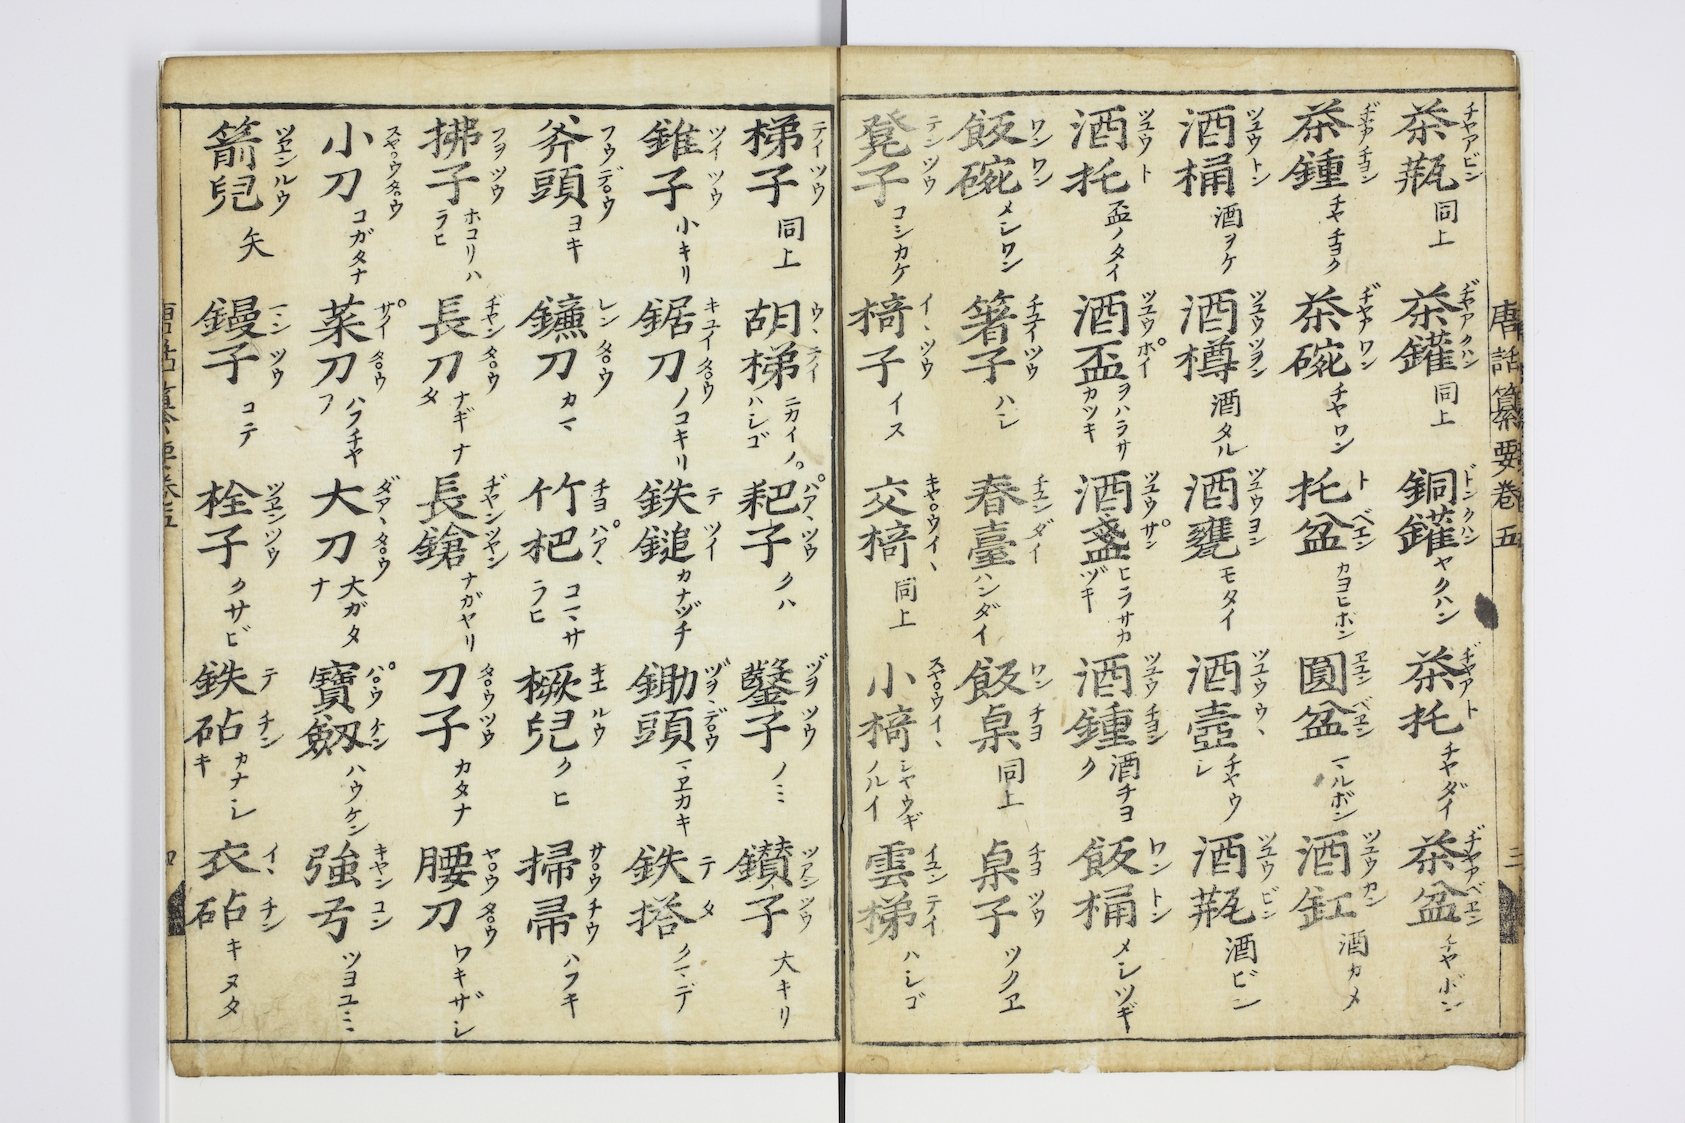 茶瓶 チヤアビン 同上 茶鑵 ヂヤアクハン 同上 銅鑵 ドンクハン ヤクハン 茶托 ヂヤアト チヤダイ 茶盆 ヂヤアベヱン チヤボン
茶鍾 ヂヤアチヨン チヤチヨク 茶碗 ヂヤアワン チヤワン 托盆 トベヱン カヨヒボン 圓盆 ヱンベヱン マルボン 酒缸 ツユウカン 酒カメ
酒桶 ツユウトン 酒ヲケ 酒樽 ツユウツヲン 酒タル 酒甕 ツユウヨン モタイ 酒壺 ツユウウヽ チヤウシ 酒瓶 ツユウビン 酒ビン
酒托 ツユウト 盃ノタイ 酒盃 ツユウポイ ヲハラサカツキ 酒盞 ツユウサ゜ン ヒラサカヅキ 酒鍾 ツユウチヨン 酒チヨク 飯桶 ワントン メシツギ
飯碗 ワンワン メシワン 箸子 チユイツウ ハシ 春臺 チユンダイ ハンダイ 飯桌 ワンチヨ 同上 桌子 チヨツウ ツクヱ
凳子 テンツウ コシカケ 椅子 イヽツウ イス 交椅 キヤ゜ウイヽ 同上 小椅 スヤ゜ウイヽ シヤウギノルイ 雲梯 イユンテイ ハシゴ
唐話纂要 巻五 二
梯子 テイツウ 同上 胡梯 ウヽテイ ニカイノハシゴ 耙子 パアヽツウ クハ 鑿子 ヅヲツウ ノミ 鑚子 ツアンツウ 大キリ
錐子 ツイツウ 小キリ 鋸刀 キユイタ゜ウ ノコキリ 鉄鎚 テツイ カナヅチ 鋤頭 ヅヲヽデ゜ウ マヱカキ 鉄搭 テタ クマデ
斧頭 フウデ゜ウ ヨキ 鐮刀 レンタ゜ウ カマ 竹杷 チヨパアヽ コマサラヒ 橛兒 キエルウ クヒ 掃帚 サ゜ウチウ ハフキ
拂子 フヲツウ ホコリハラヒ 長刀 ヂヤンタ゜ウ ナギナタ 長鎗 ヂヤンツヤン ナガヤリ 刀子 タ゜ウツウ カタナ 腰刀 ヤ゜ウタ゜ウ ワキザシ
小刀 スヤ゜ウタ゜ウ コガタナ 菜刀 サ゜イタ゜ウ ハフチヤフ 大刀 ダアヽタ゜ウ 大ガタナ 寶劔 パ゜ウケン ハウケン 強弓 キヤンコン ツヨユミ
箭兒 ツヱンルウ 矢 鏝子 マンツウ コテ 栓子 ツヱンツウ クサビ 鉄砧 テチン カナシキ 衣砧 イヽチン キヌタ